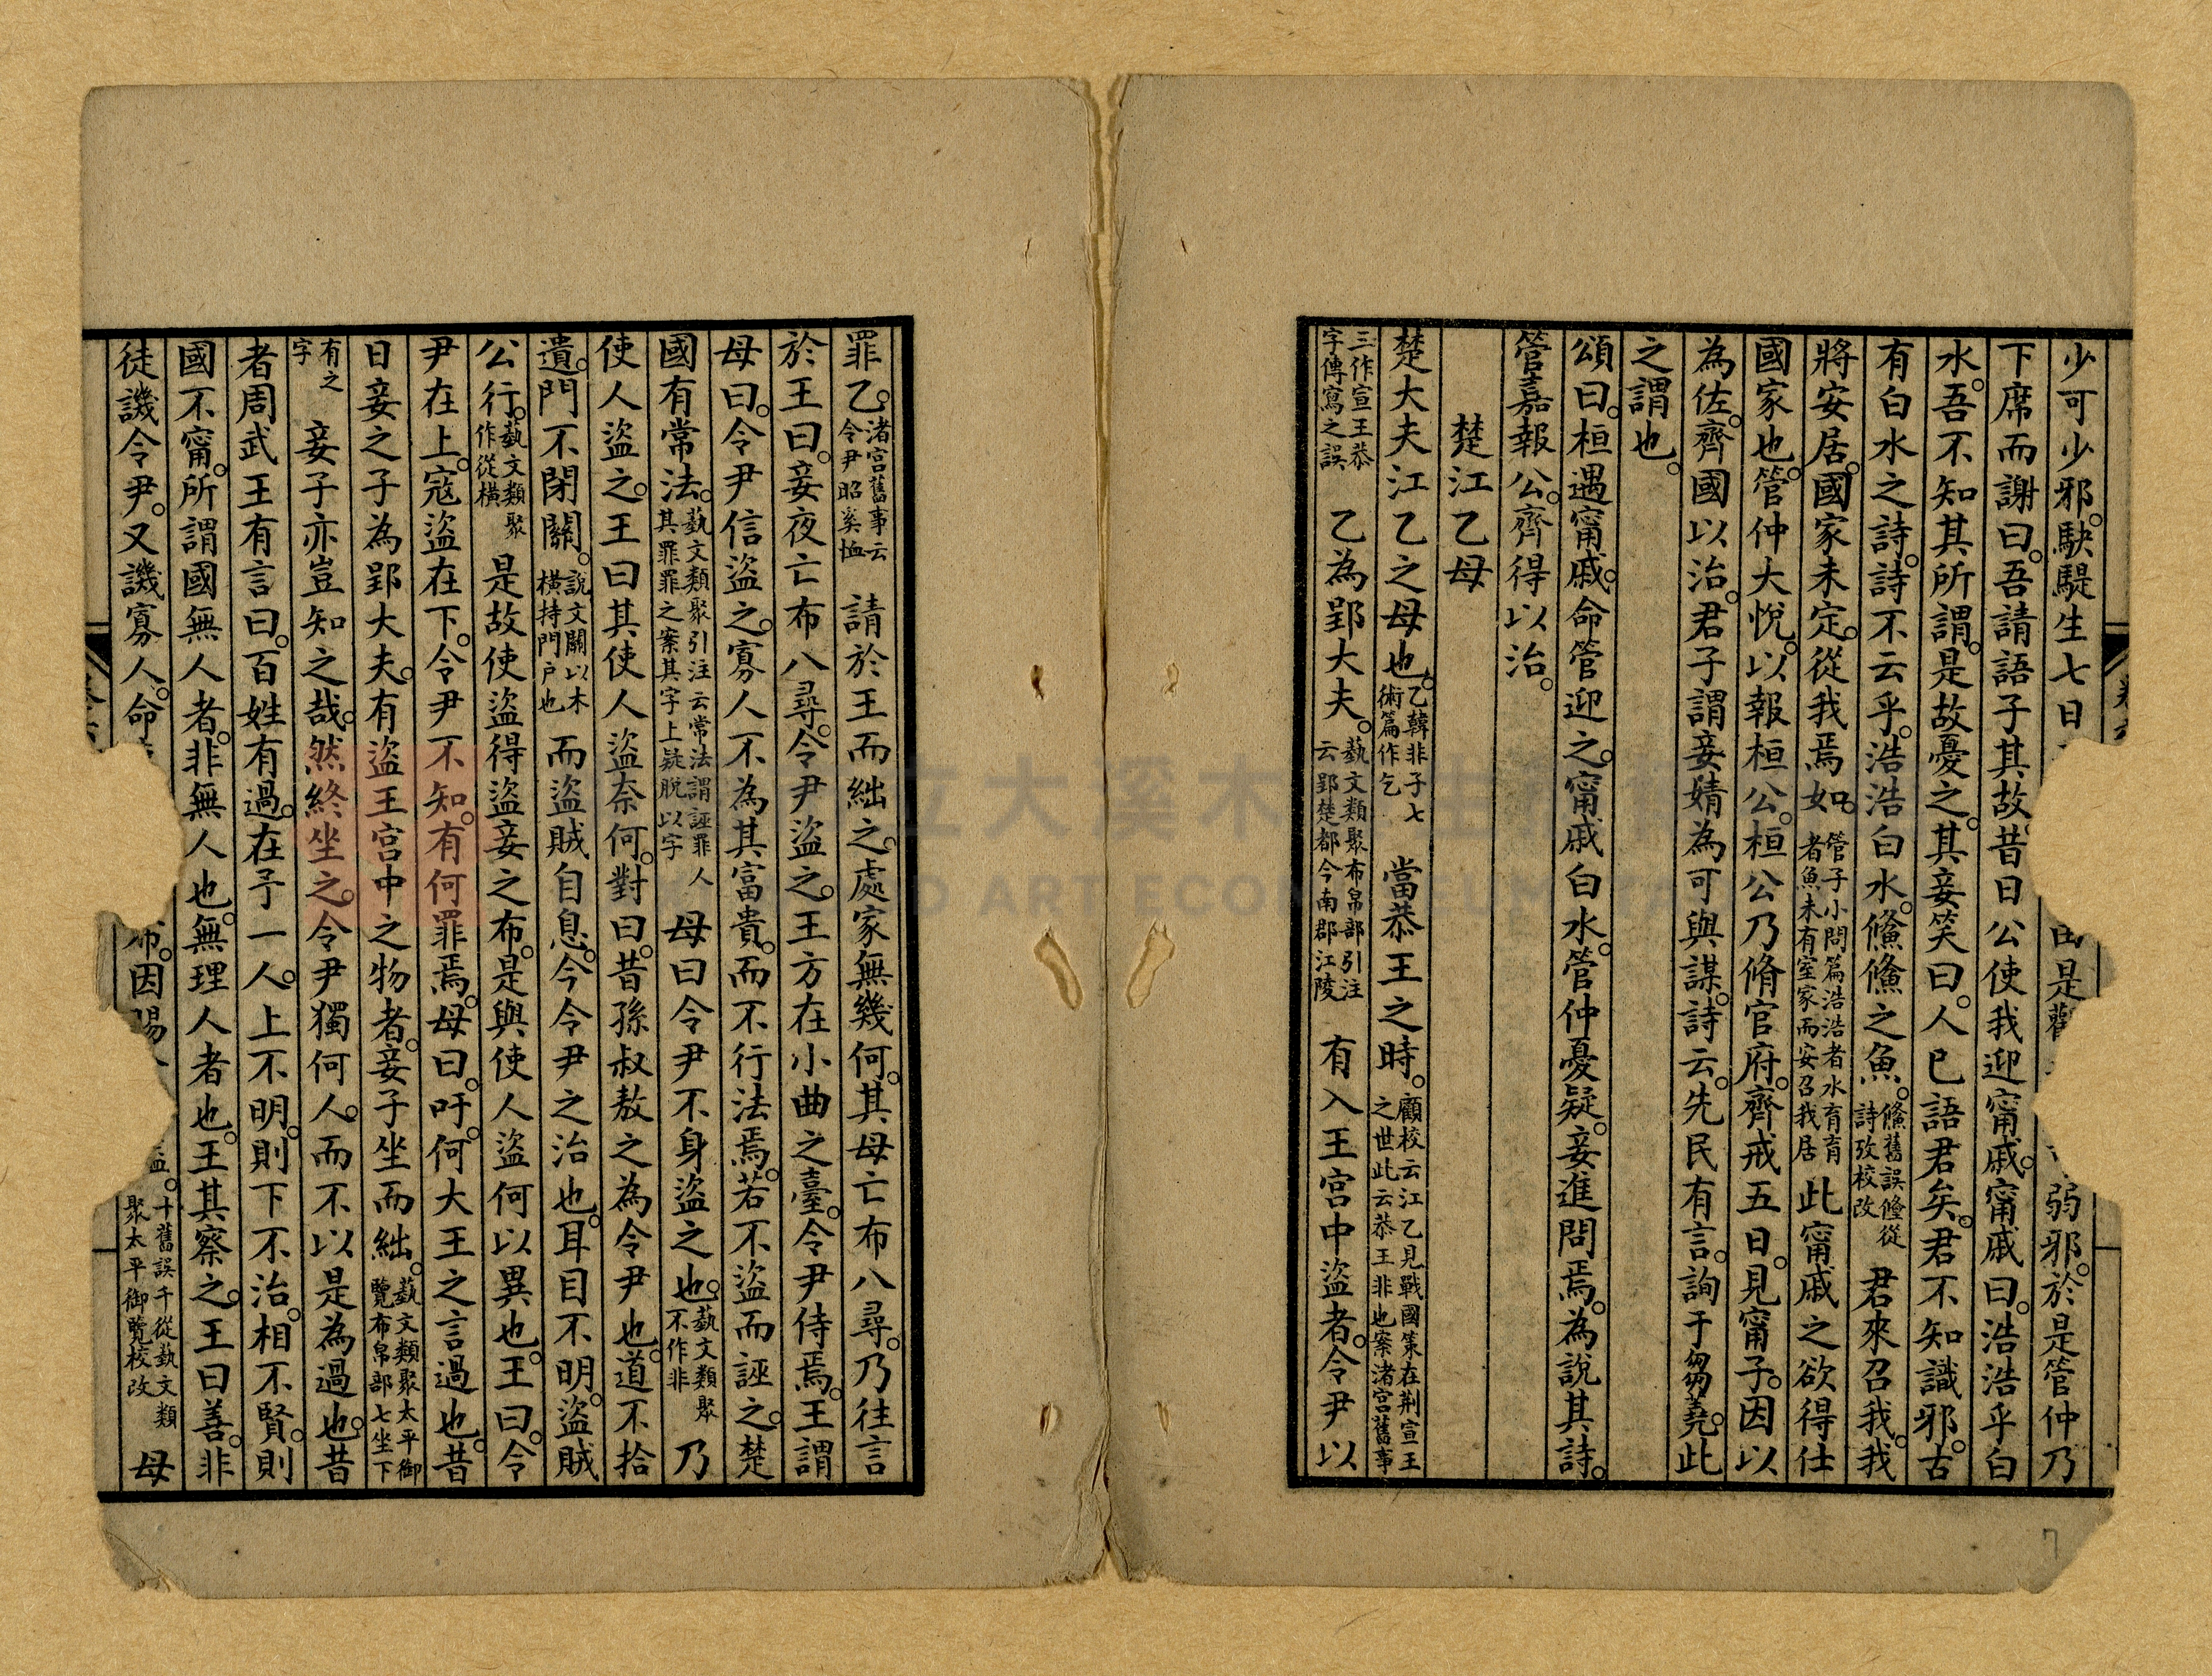 少可少邪。駃騠生七日
由是觀
弱邪。於是管仲乃
下席而謝曰。吾請語子其故。昔日公使我迎甯戚。甯戚曰。浩浩乎白
水。吾不知其所謂。是故憂之。其妾笑曰。人已語君矣。君不知識邪。古
有白水之詩。詩不云乎。浩浩白水。鯈鯈之魚。
鯈舊誤儵從
詩攷校改
君來召我。我
將安居。國家未定。從我焉如。
管子小問篇浩浩者水育育
者魚未有室家而安召我居
此甯戚之欲得仕
國家也。管仲大悅。以報桓公。桓公乃脩官府。齊戒五日。見甯子。因以
為佐。齊國以治。君子謂妾婧為可與謀。詩云。先民有言。詢于芻蕘。此
之謂也。
頌曰。桓遇甯戚。命管迎之。甯戚白水。管仲憂疑。妾進問焉。為說其詩。
管嘉報公。齊得以治。
楚江乙母
楚大夫江乙之母也。
乙韓非子七
術篇作乞
當恭王之時。
顧校云江乙見戰國策在荆宣王
之世此云恭王非也案渚宮舊事
三作宣王恭
字傳寫之誤
乙為郢大夫。
藝文類聚布帛部引注
云郢楚都今南郡江陵
有入王宮中盜者。令尹以
罪乙。
渚宮舊事云
令尹昭奚恤
請於王而絀之。處家無幾何。其母亡布八尋。乃往言
於王曰。妾夜亡布八尋。令尹盜之。王方在小曲之臺。令尹侍焉。王謂
母曰。令尹信盜之。寡人不為其富貴。而不行法焉。若不盜而誣之。楚
國有常法。
藝文類聚引注云常法謂誣罪人
其罪罪之案其字上疑脫以字
母曰令尹不身盜之也。
藝文類聚
不作非
乃
使人盜之。王曰其使人盜奈何。對曰。昔孫叔敖之為令尹也。道不拾
遺。門不閉關。
說文關以木
橫持門戶也
而盜賊自息。今令尹之治也。耳目不明。盜賊
公行。
藝文類聚
作從橫
是故使盜得盜妾之布。是與使人盜何以異也。王曰。令
尹在上。寇盜在下。令尹不知。有何罪焉。母曰。吁。何大王之言過也。昔
日妾之子為郢大夫。有盜王宮中之物者。妾子坐而絀。
藝文類聚太平御
覽布帛部七坐下
有之
字
妾子亦豈知之哉。然終坐之。令尹獨何人。而不以是為過也。昔
者周武王有言曰。百姓有過。在予一人。上不明。則下不治。相不賢。則
國不甯。所謂國無人者。非無人也。無理人者也。王其察之。王曰善。非
徒譏令尹。又譏寡人。命
布。因賜
十舊誤千從藝文類
聚太平御覽校改
母
7